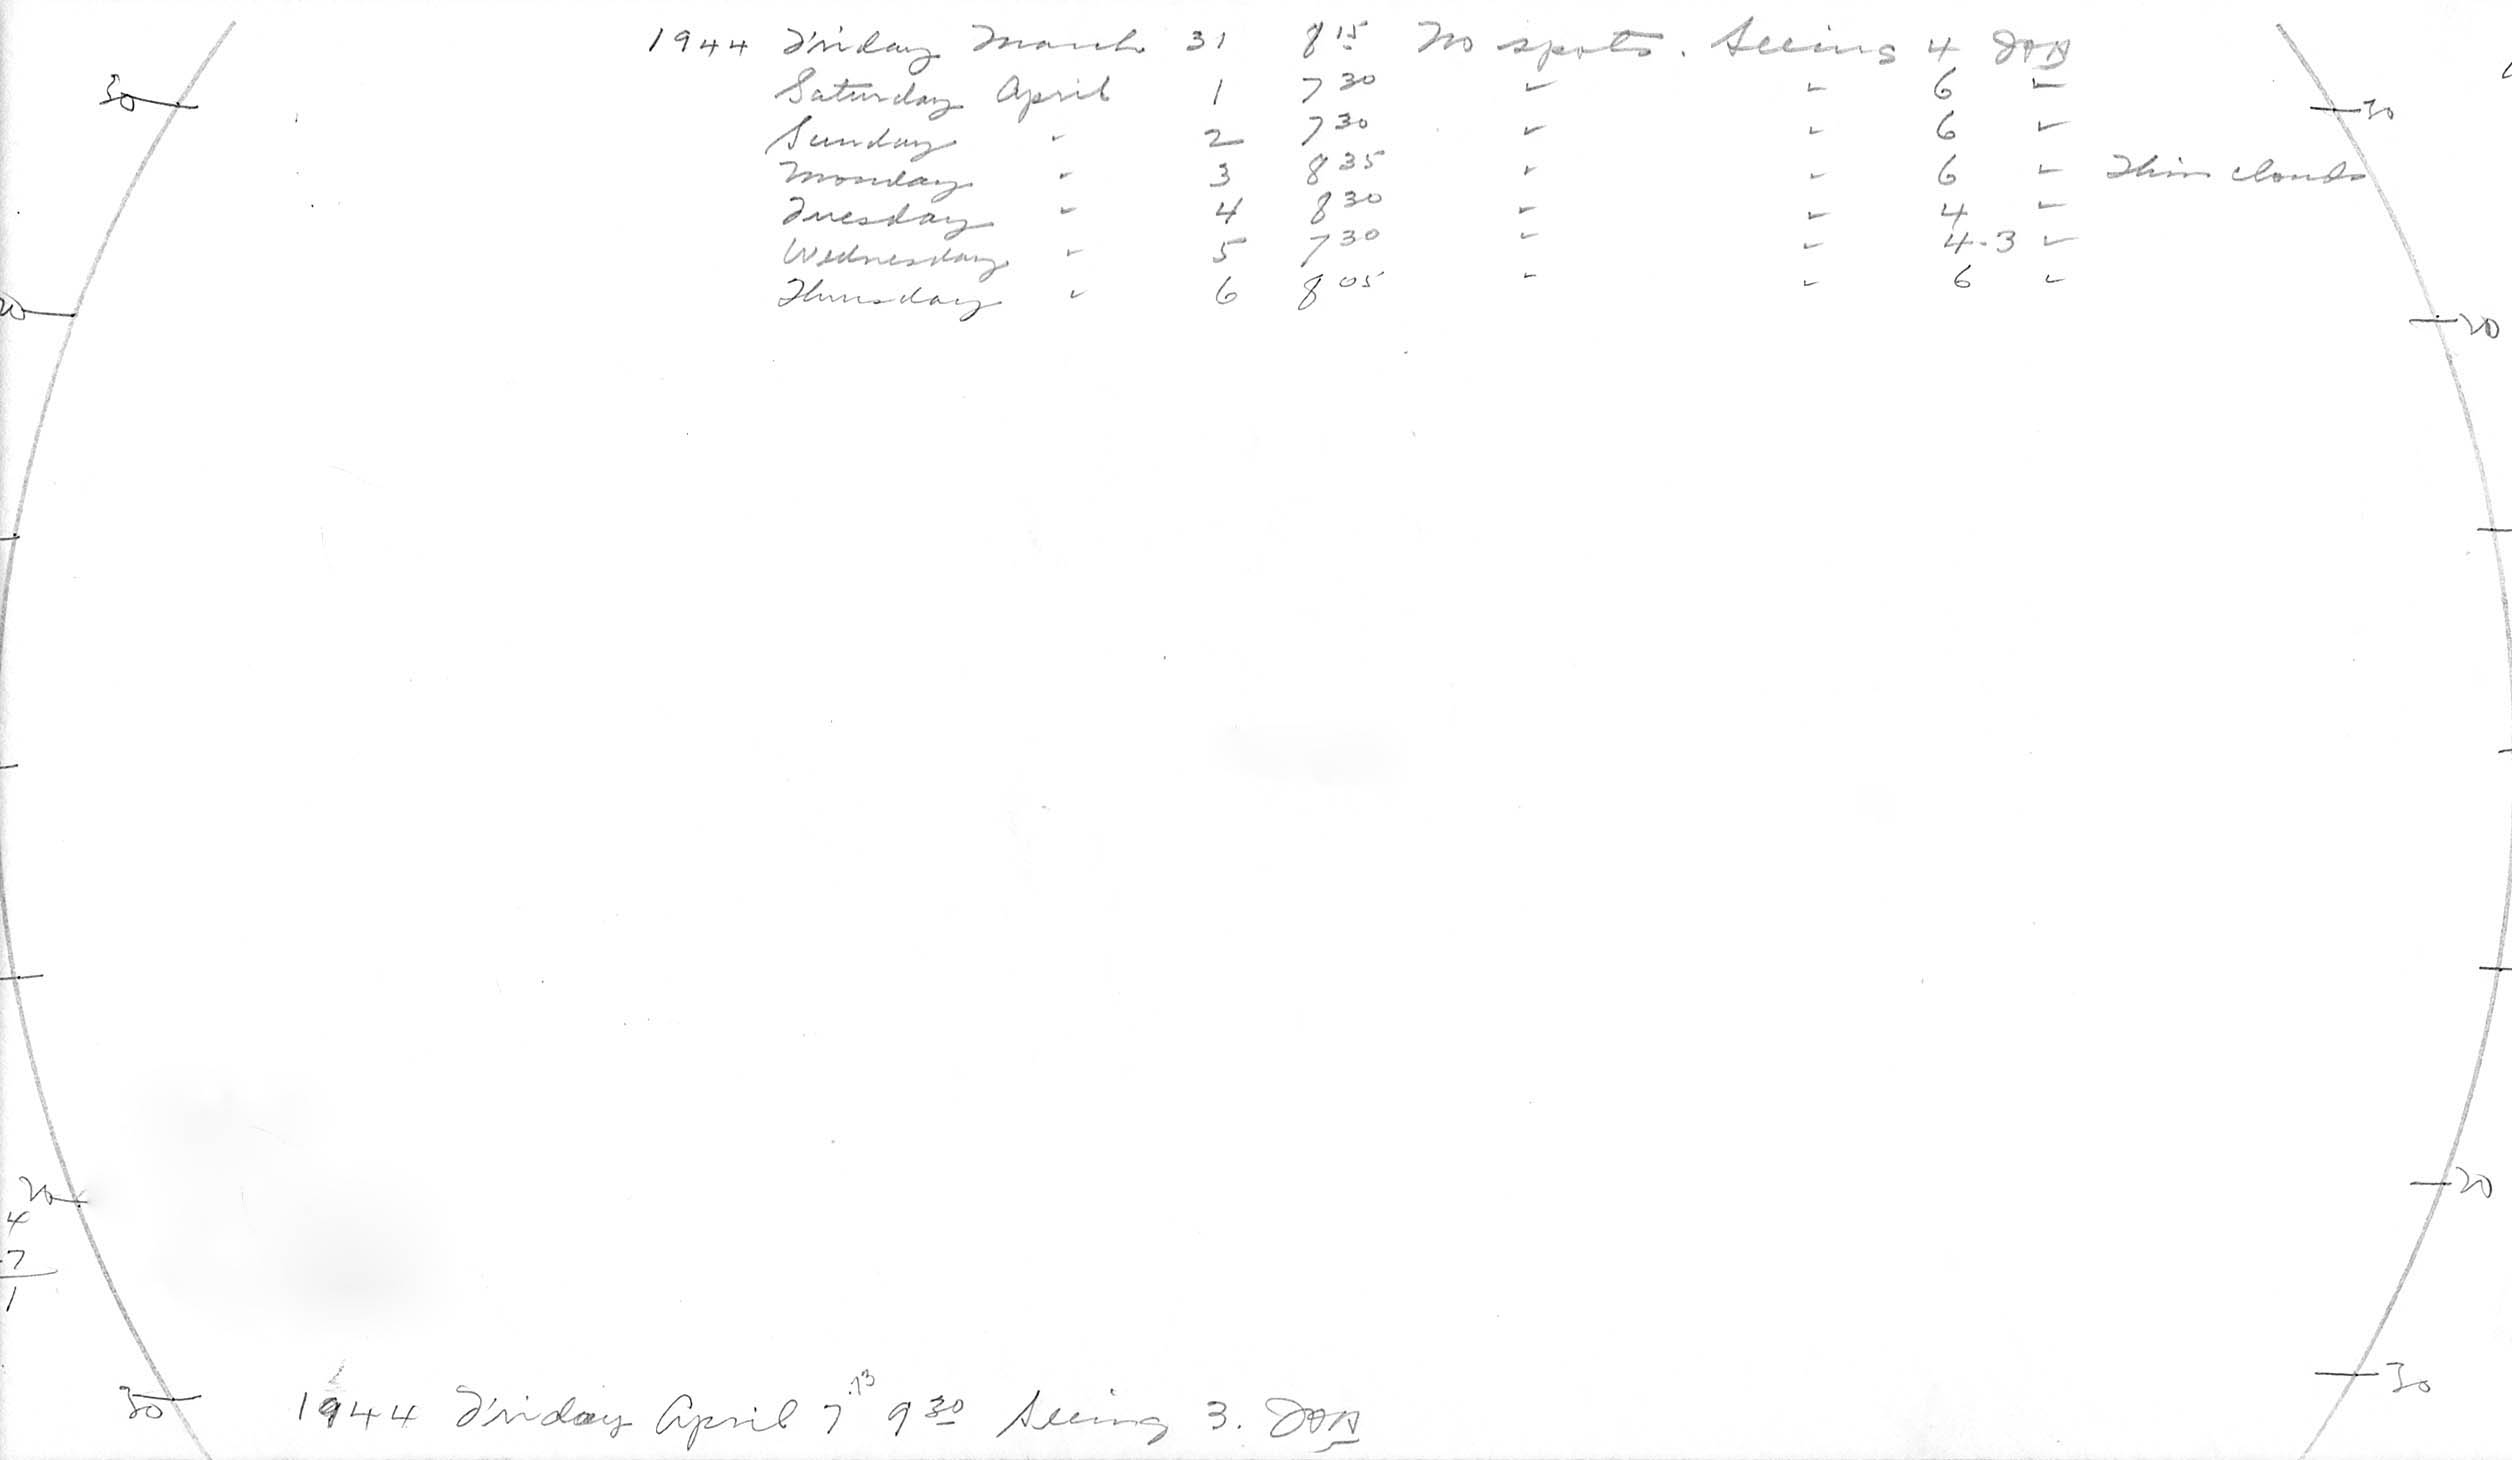 1944 Friday March 31 8 15 No spots. Seeing 4
30 Saturday April 1 7 30 " " 6 " 30
Sunday " 2 7 30 " " 6 "
Monday " 3 8 35 " " 6 " Thin clouds
Tuesday " 4 8 30 " " 4 "
Wednesday " 5 7 30 " " 4-3 "
Thursday " 6 8 05 " " 6 "
20 20
20 20
4
7
1
30 30
1944 Friday April 7 .13 9 30 Seeing 3.